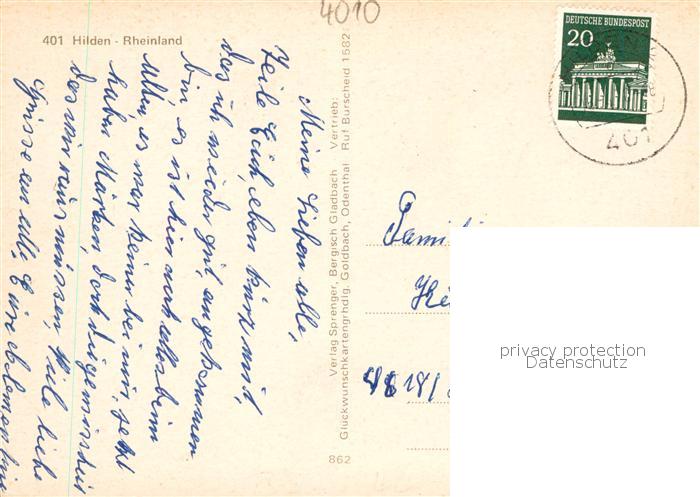 4010
401 Hilden - Rheinland
DEUTSCHE BUNDESPOST
20
401
Meine Lieben alle,
teile Euch eben kurz mit,
das ich wieder gut angekommen
bin, es ist hier noch alles beim
Alten, es war keiner bei mir, jetzt
habe Marken, dort
das wir Viele liebe
Grüsse an alle, Eure
Verlag Sprenger, Bergisch Gladbach Vertrieb:
Glückwunschkartengrhdlg. Goldbach, Odenthal Ruf Burscheid 1582
862
Famil
He
privacy protection
Datenschutz